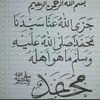 بسم الله الرحمن الرحيم
جزى الله عنا سيدنا
محمدا صلى الله عليه
وسلم ما هو أهله
محمد